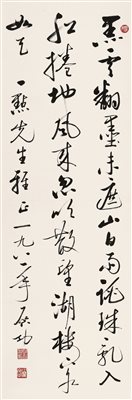 黑雲翻墨未遮山白雨跳珠亂入
船捲地風来忽吹散望湖樓下水
如天 一點先生雅正 一九八二年 启功